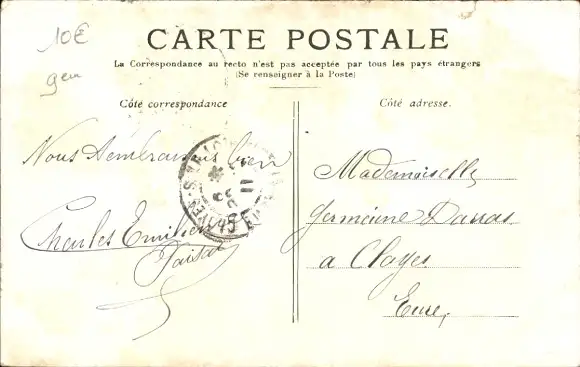 10€
gen
CARTE POSTALE
La Correspondance au recto n'est pas acceptée par tous les pays étrangers
(Se renseigner à la Poste)
Côté correspondance
Côté adresse.
Nous bien
Charles Emilien
Mademoiselle
Germeine
a Clayes
Eure,